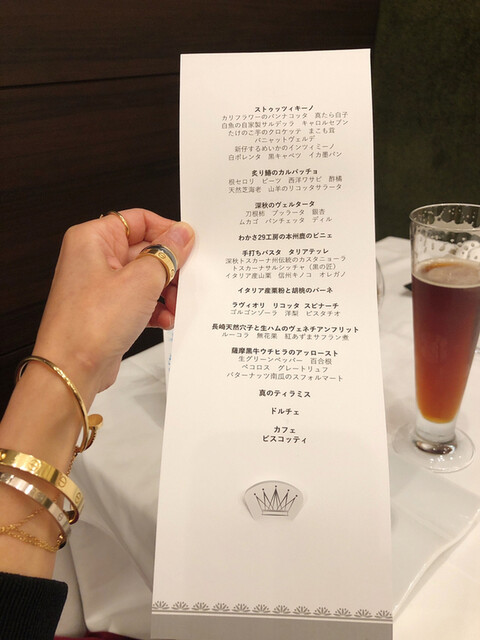 ストゥッツィキーノ
カリフラワーのパンナコッタ 真たら白子
白魚の自家製サルデッラ キャロルセブン
たけのこ芋のクロケッテ まこも茸
パニャットヴェルデ
新仔するめいかのインツィミーノ
白ポレンタ 黒キャベツ イカ墨パン
炙り鰆のカルパッチョ
根セロリ ビーツ 西洋ワサビ 酢橘
天然芝海老 山羊のリコッタサラータ
深秋のヴェルタータ
刀根柿 ブッラータ 銀杏
ムカゴ パンチェッタ ディル
わかさ29工房の本州鹿のビニェ
手打ちパスタ タリアテッレ
深秋トスカーナ州伝統のカスタニョーラ
トスカーナサルシッチャ（黒の匠）
イタリア産山栗 信州キノコ オレガノ
イタリア産栗粉と胡桃のパーネ
ラヴィオリ リコッタ スピナーチ
ゴルゴンゾーラ 洋梨 ピスタチオ
長崎天然穴子と生ハムのヴェネチアンフリット
ルーコラ 無花果 紅あずまサフラン煮
薩摩黒牛ウチヒラのアッロースト
生グリーンペッパー 百合根
ペコロス グレートリュフ
バターナッツ南瓜のスフォルマート
真のティラミス
ドルチェ
カフェ
ビスコッティ